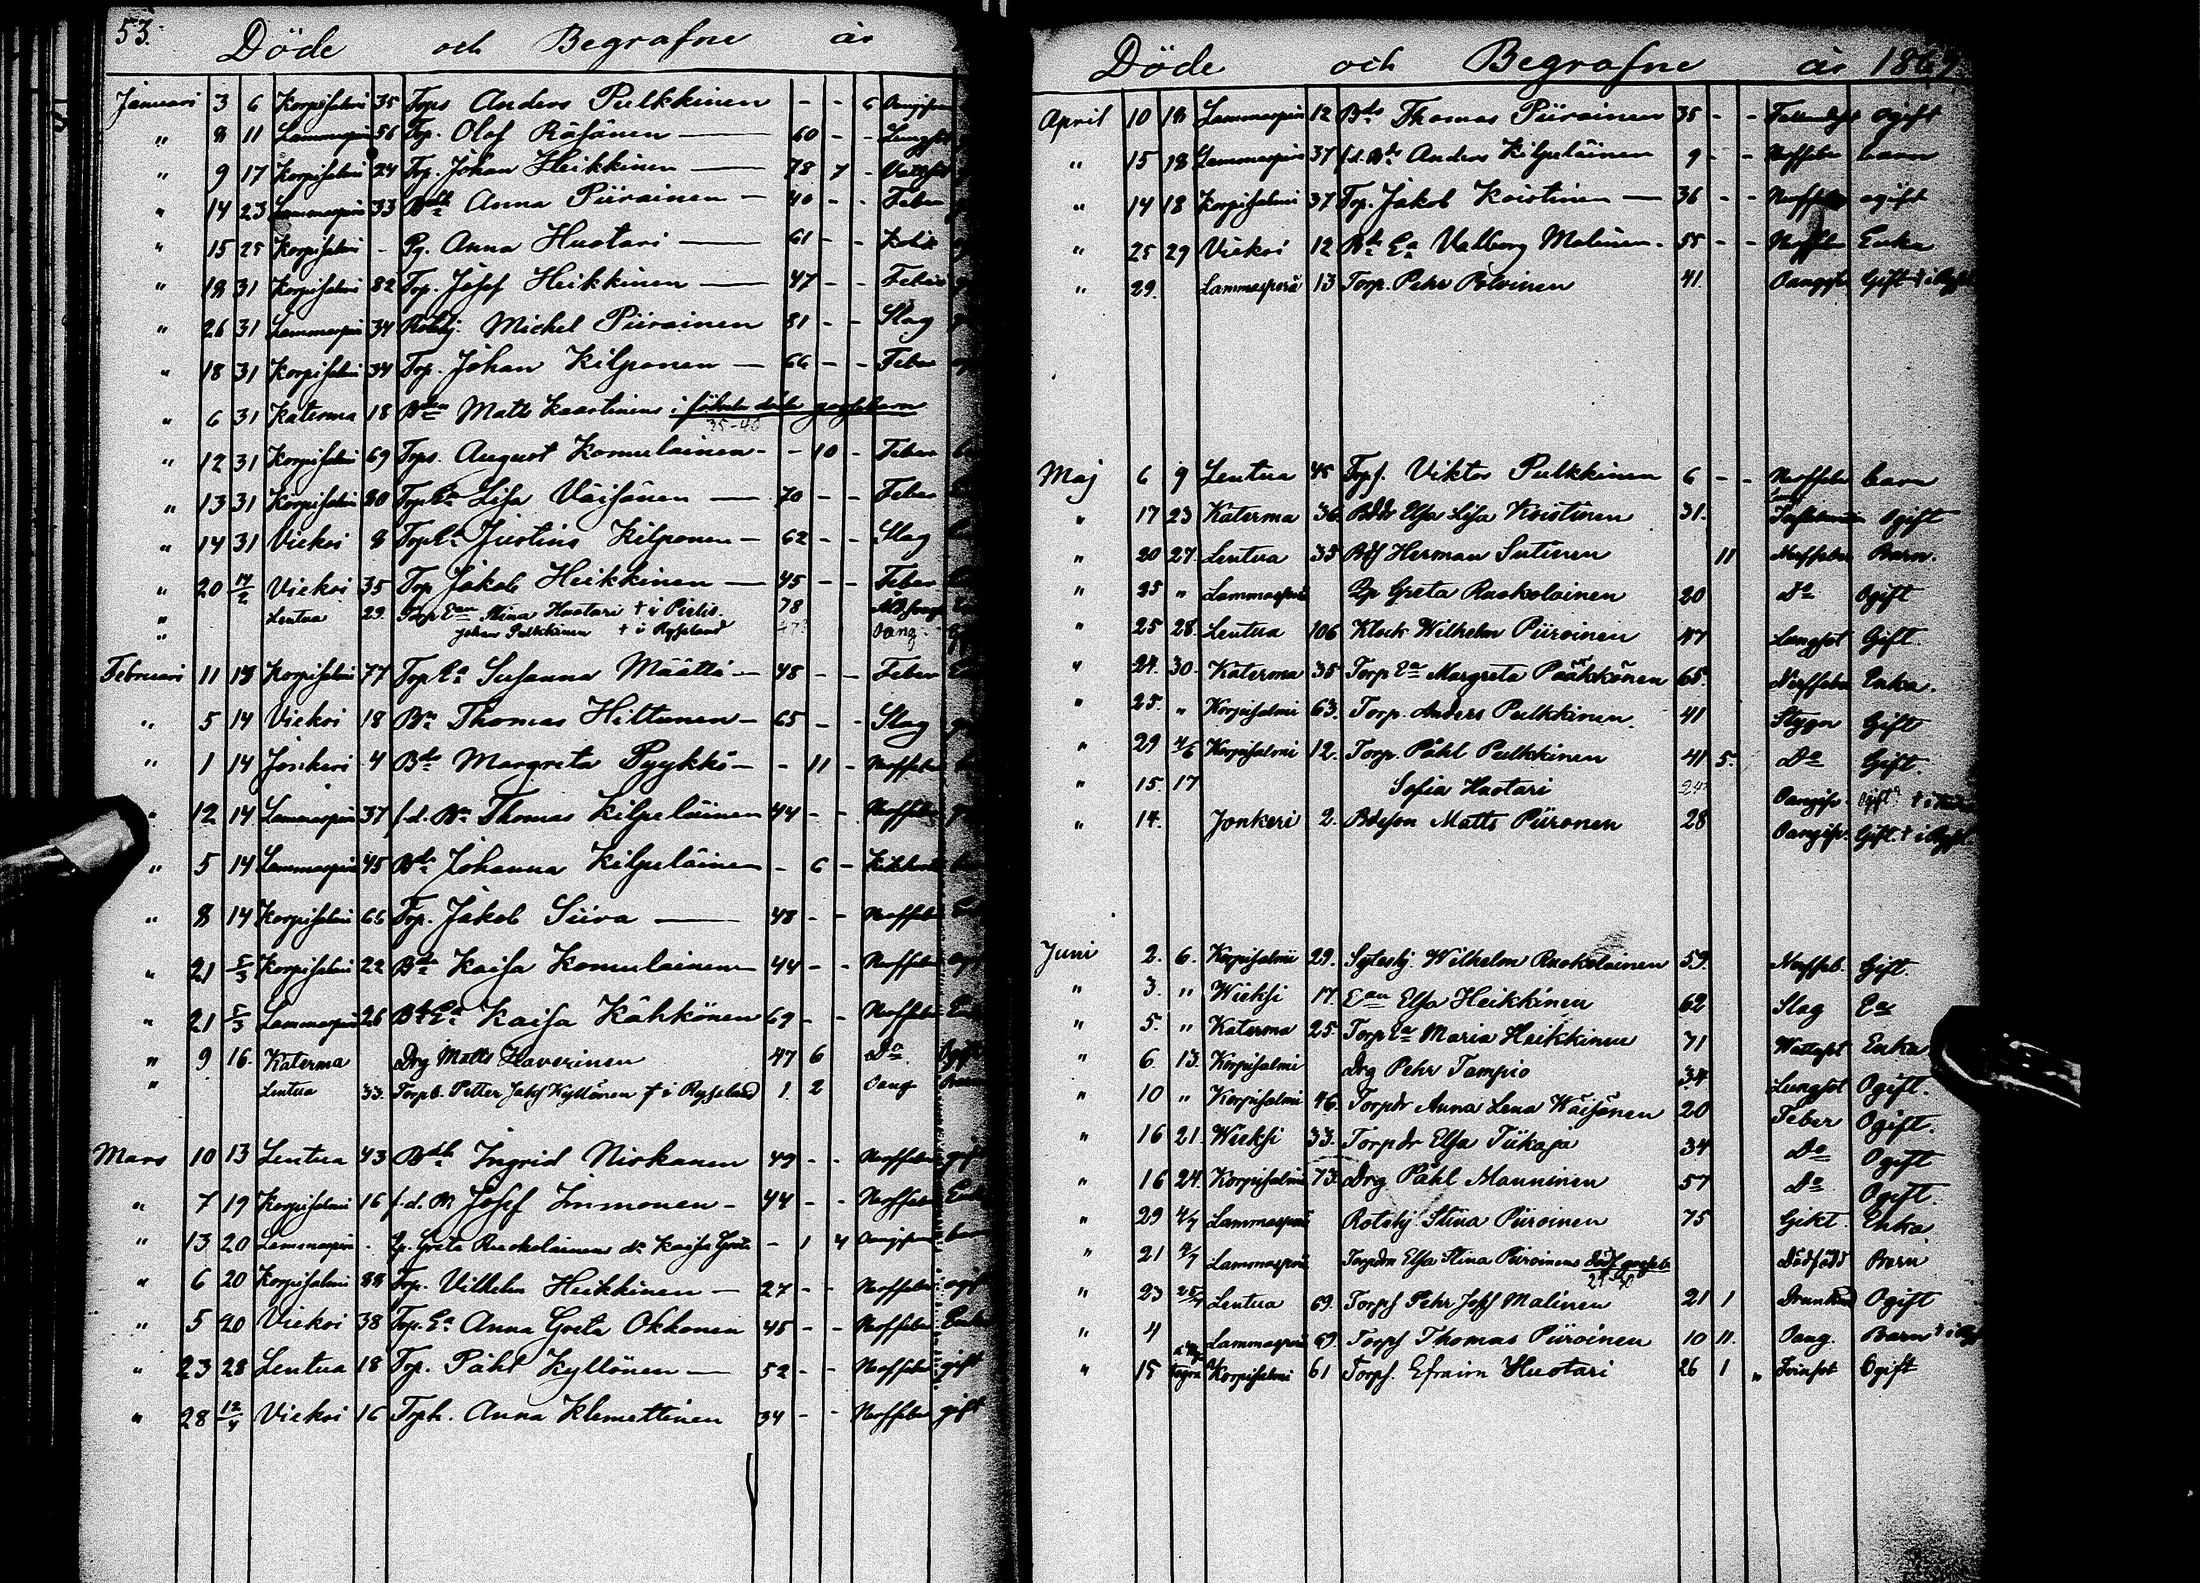 53.
Döde och Begrafne år
Januari 3 6 Korpisalmi 35 Torps Anders Pulkkinen - - 6
" 8 11 Lammasperä 56 Torp. Olof Räsänen — 60 - - Lungsot
" 9 17 Korpisalmi 24 Torp. Johan Heikkinen — 78 7 -
" 14 23 Lammasperä 33 Anna Piirainen — 40 - - Feber
" 15 25 Korpisalmi - Pg. Anna Huotari — 61 - - Kolik
" 18 31 Korpisalmi 82 Torp. Josef Heikkinen — 47 - - Feber
" 26 31 Lammasperä 34 Rotehj. Michel Piirainen 81 - - Slag
" 18 31 Korpisalmi 34 Torp. Johan Kilponen — 66 - - Feber
" 6 31 Katerma 18 Matts Kaartinens
35-40
" 12 31 Korpisalmi 69 Torps. August Komulainen - - 10 - Feber
" 13 31 Korpisalmi 80 Lisa Väisänen — 70 - - Feber
" 14 31 Viekси 8 Justina Kilponen — 62 - - Slag
" 20 14/2 Vieksi 35 Torp Jakob Heikkinen — 45 - - Feber
" Lentua 29. Torp Ean Stina Huotari † i Pielis. 78
" Johan Pulkkinen † i Ryssland Oang.
Februari 11 Korpisalmi 77 Torp Ea Susanna Määttä — 48 - - Feber
" 5 14 Vieksi 18 Bn Thomas Hiltunen — 65 - - Slag
" 1 14 Jonkeri 4 Margreta Pyykkö — - 11 - Nerffeber
" 12 14 Lammasperä 37 f.d. Bn Thomas Kilpeläinen 44 - - Nerffeber
" 5 14 Lammasperä 45 Johanna Kilpeläinen - 6 - Kikhosta
" 8 14 Korpisalmi 66 Torp. Jakob Siira — 48 - - Nerffeber
" 21 5/3 Korpisalmi 22 Kaisa Komulainen 44 - - Nerffeber
" 21 5/3 Lammasperä 26 Kaisa Kähkönen 69 - - Nerffeber
" 9 16. Katerma Drg Matts Haverinen 47 6 Do
" Lentua 33. Torpb. Petter Josef Kyllönen † i Ryssland 1. 2 Oang
Mars 10 13 Lentua 43 Ingrid Niskanen 49 - - Nerffeber gift
" 7 19 Korpisalmi 16 f.d. Bn Josef Immonen - 44 - - Nerffeber
" 13 20 Lammasperä . Greta Ruokolainens dr Kaisa Greta - 1 4
" 6 20 Korpisalmi 88 Torp. Vilhelm Heikkinen — 27 - - Nerffeber ogift
" 5 20 Vieksi 38 Torp. Ea Anna Greta Okkonen 45 - - Nerffeber
" 23 28 Lentua 18 Torp. Påhl Kyllönen — 52 - - Nerffeber gift
" 28 12/4 Vieksi 16 Torph. Anna Klemettinen 34 - - Nerffeber gift
Döde och Begrafne år 1867.
April 10 18 Lammasperä 12 Thomas Piirainen 35 - - ogift
" 15 18 Lammasperä 37 f.d. Anders Kilpeläinen 9 - - Nerffeber barn
" 14 18 Korpisalmi 37 Torp. Jakob Koistinen — 36 - - Nerffeber ogift
" 25 29 Vieksi 12 Ea Valborg Malinen. 55 - - Nerffeber Enka
" 29. Lammasperä 13 Torp. Pehr Polvinen 41. Oangifv. Gift
Maj 6 9 Lentua 48 Torps. Viktor Pulkkinen 6 - - Nerffeber barn
" 17 23 Katerma 36. Bddr Elsa Lisa Koistinen 31. Ogift
" 20 27 Lentua 33 Bds Herman Sutinen 11 Nerffeber Barn.
" 25 " Lammasperä Greta Ruokolainen 20 Do Ogift
" 25 28. Lentua 106 Klock Wilhelm Piiroinen 47 Lungsot Gift.
" 24. 30. Katerma 35 Torp Ea Margreta Pääkkönen 65. Nerffeber Enka.
" 25. " Korpisalmi 63. Torp. Anders Pulkkinen. 41 Stygn Gift
" 29 4/6 Korpisalmi 12. Torp. Påhl Pulkkinen 41 5. Do Gift.
" 15. 17 Sofia Huotari 24 Oangifv. Ogift
" 14. Jonkeri 2. Bdeson Matts Piironen 28 Oangifv. Gift.
Juni 2. 6. Korpisalmi 29. Sytehj. Wilhelm Ruokolainen 59. Nerffeb. Gift.
" 3. " Wieksi 17. Ean Elsa Heikkinen 62. Slag Ea
" 5. " Katerma 25. Torp Ea Maria Heikkinen 71 Wattsot Enka
" 6 13. Korpisalmi Drg Pehr Tampio 34 Lungsot Ogift.
" 10 " Korpisalmi 46. Torpdr Anna Lena Wäisänen 20 Feber Ogift.
" 16 21. Wieksi 33. Torpdr Elsa Tiikaja 34 Do Ogift
" 16 24. Korpisalmi 73. Drg Påhl Manninen 57 Do Ogift.
" 29 4/7 Lammasperä Rotehj. Stina Piiroinen 75 Gikt. Enka
" 21 Lammasperä Torpdn Elsa Stina Piiroinens Dödfödd Barn
" 23 Lentua 69. Torps Pehr Josef Malinen 21 1 Ogift
" 4 Lammasperä 69. Torps Thomas Piiroinen 10 11. Oang. Barn
" 15 Korpisalmi 61 Torps. Efraim Huotari 26 1 " Ogift